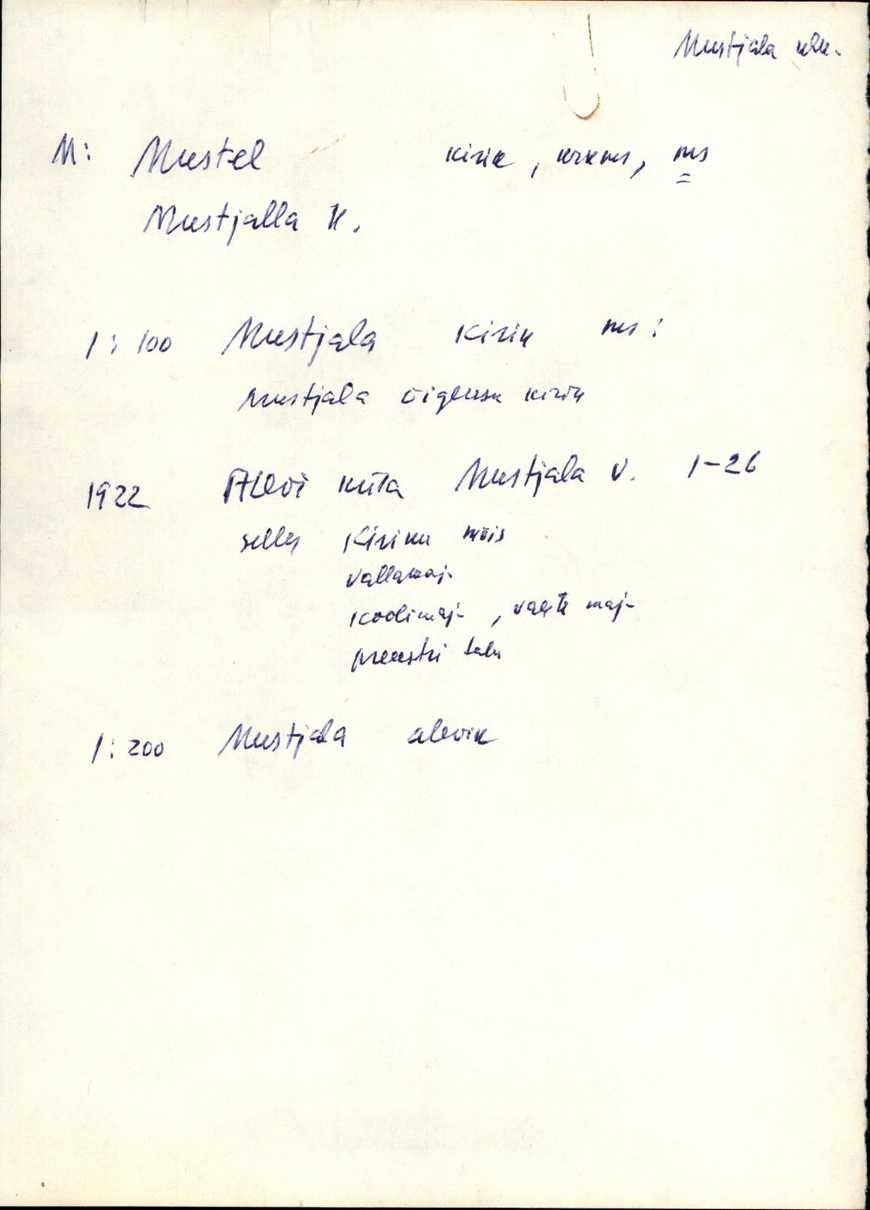 Mustjala khk.
M: Mustel kirik, krkms, ms
Mustjalla K.
1:100 Mustjala kirik ms:
Mustjala õigeusu kirik
1922 Alevi küla Mustjala v. 1-26
selles Kiriku mõis
vallamaj-
koolimaj-, vaeste maj-
preestri talu
1:200 Mustjala alevik